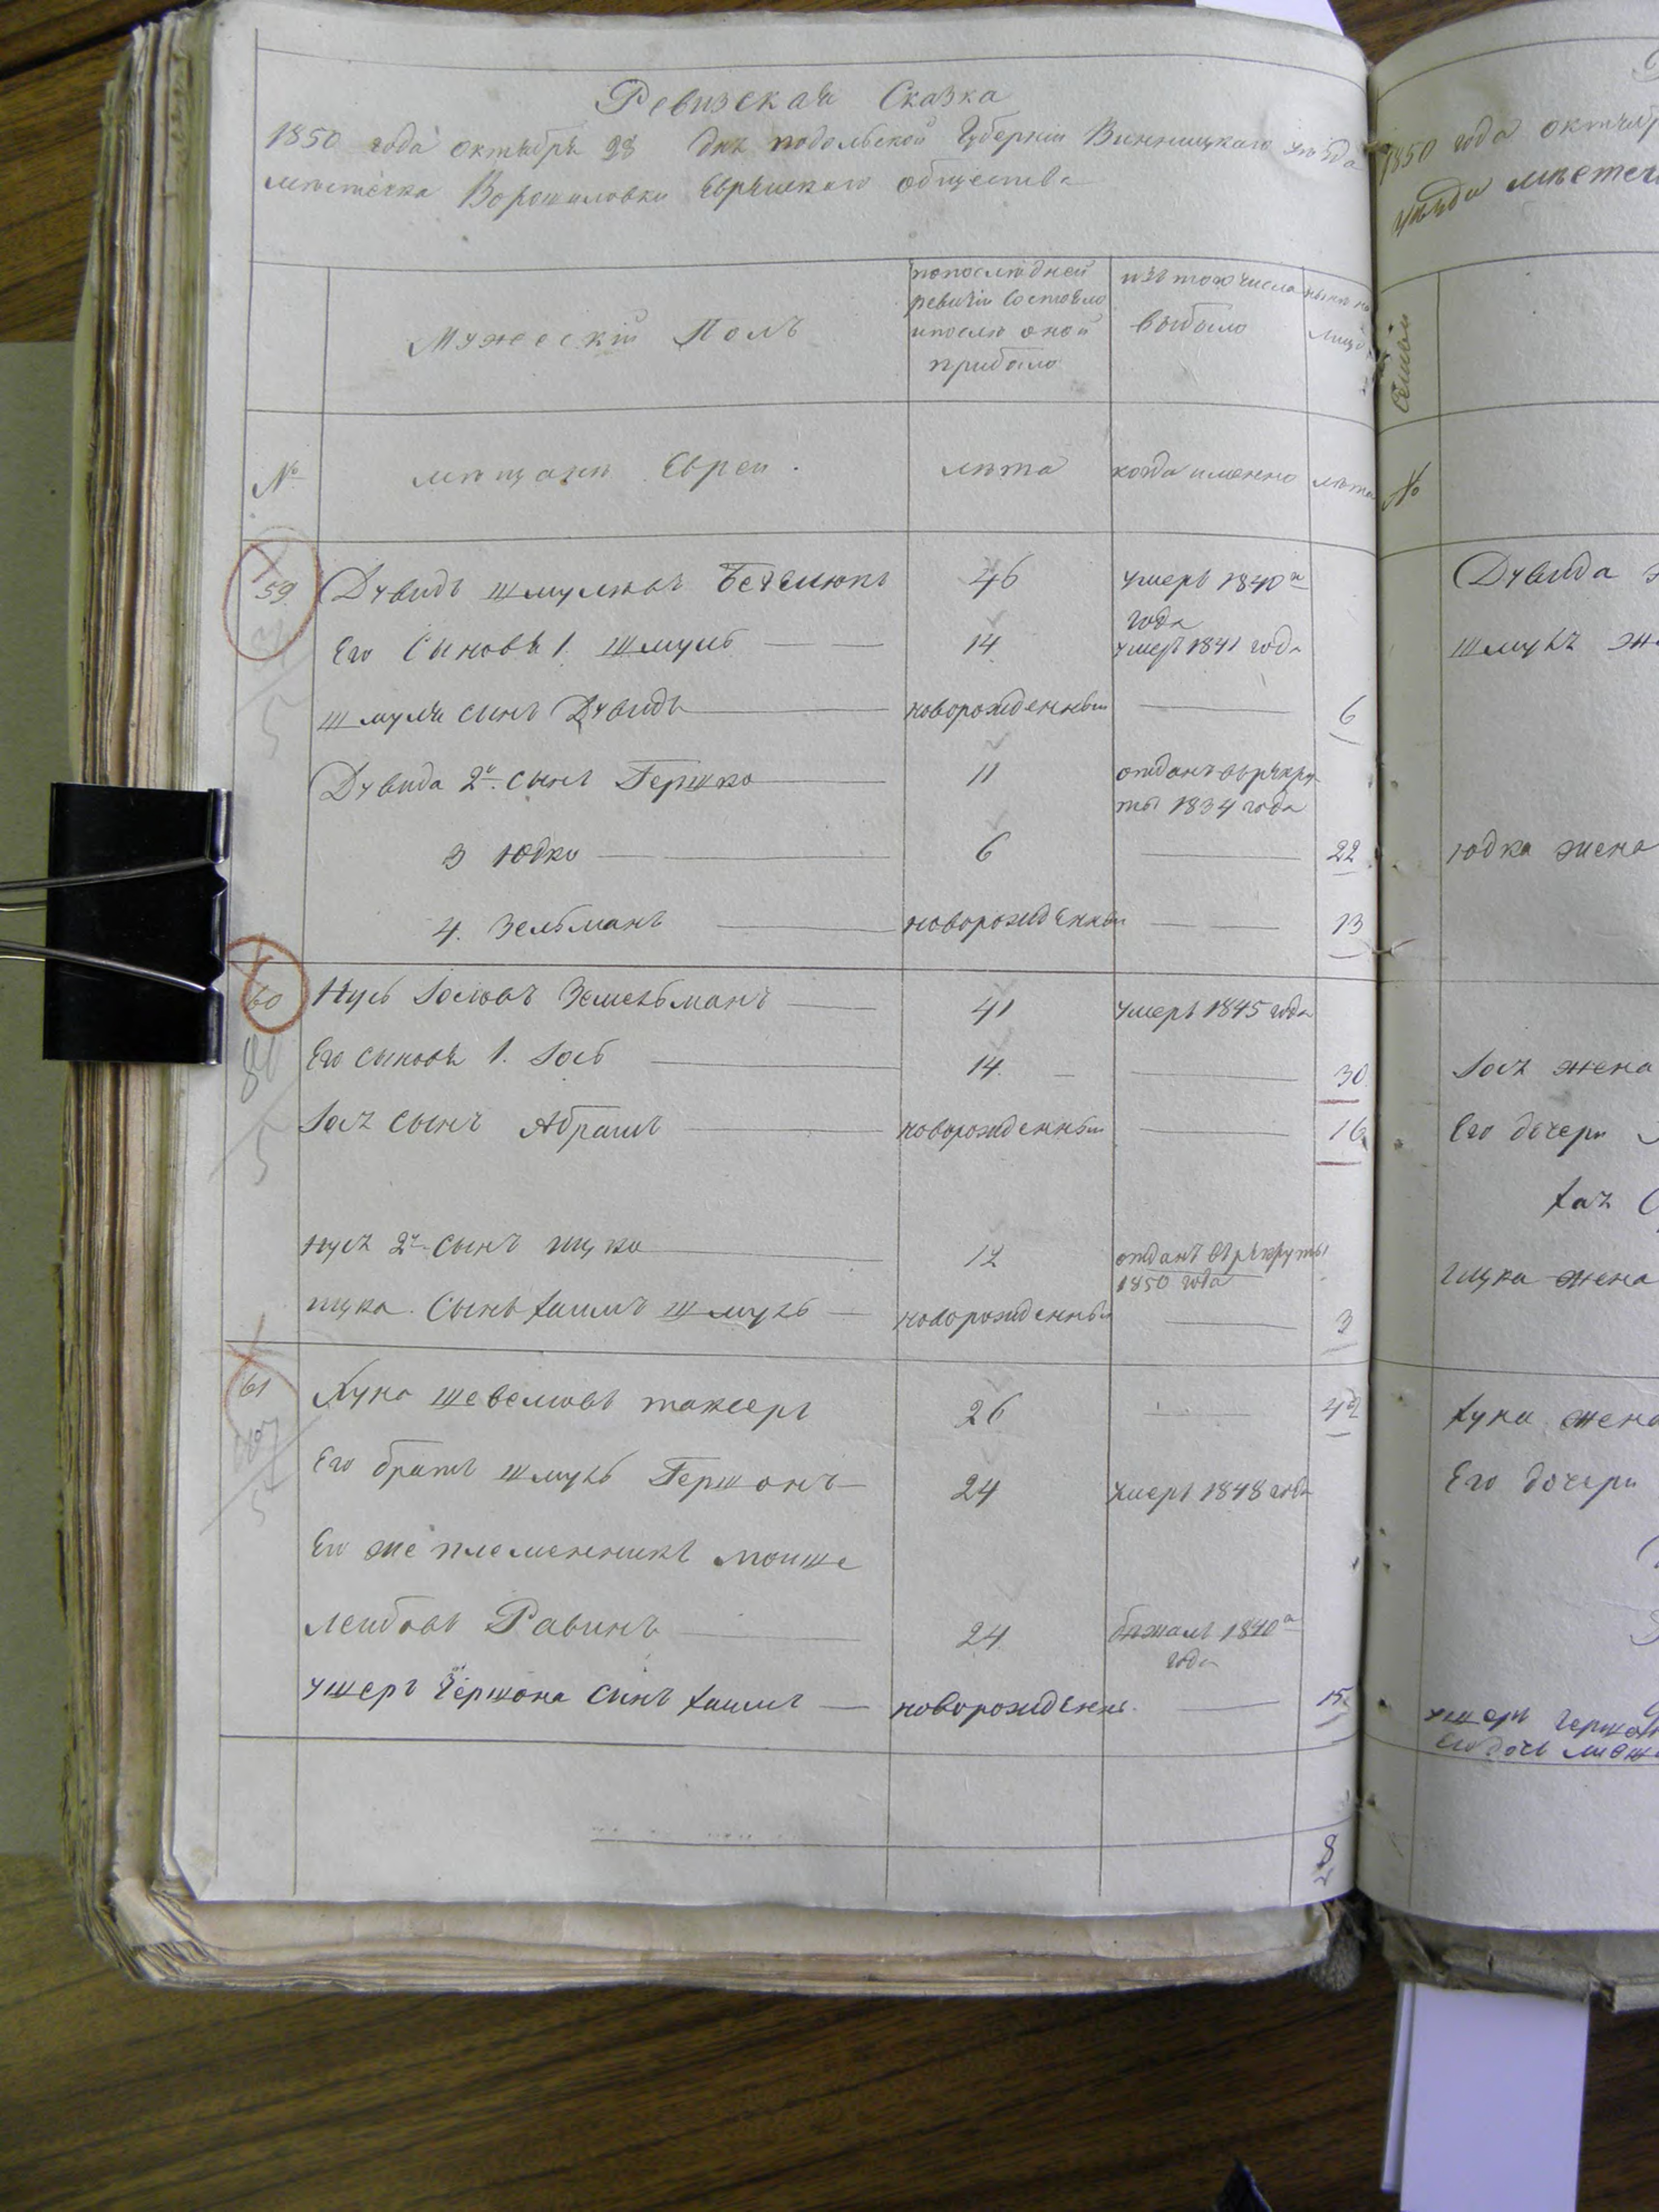 Ревизская Сказка
1850 года октября 28 дня подольской Губернии Винницкаго уезда
местечка Ворошиловки Еврейскаго общества
Мужескій Полъ
попоследней
ревизіи состояло
ипосле оной
прибыло
изъ того числа
выбыло
ныне на
лицо
№
мещане Евреи.
лета
когда именно
лета
59
Дувидъ Шмулювъ 46 умеръ 1840го
года
Его Сыновя 1. Шмуль 14 умеръ 1841 года
Шмуля сынъ Дувидъ новорожденный 6
Дувида 2й сынъ Гершко 11 отданъ врекру-
ты 1834 года
3 Юдко 6 22
4. Зельманъ новорожденный 13
60 Нусь Іосювъ 41 умеръ 1845 года
Его сыновя 1. Іось 14 30
Іося сынъ Абрамъ новорожденный 16
Нуся 2й сынъ Ицко 12 отданъ врекруты
1850 года
Ицка сынъ Хаимъ Шмуль новорожденный 3
61 Хуна Шевелювъ 26 42
Его братъ Шмуль Гершонъ 24 умеръ 1848 года
Его же племенникъ Моише
Леибовъ Равинъ 24 бежалъ 1840го
года
Ушеръ Гершона Синъ Хаимъ новорожденны 15
8
1850 года октябр
уезда местеч
Семьи
№
Дувида
Шмуля
Юдка жена
Іося жена
Его дочери
Хая
Ицка жена
Хуна жена
Его дочери
Ушеръ
Его дочь